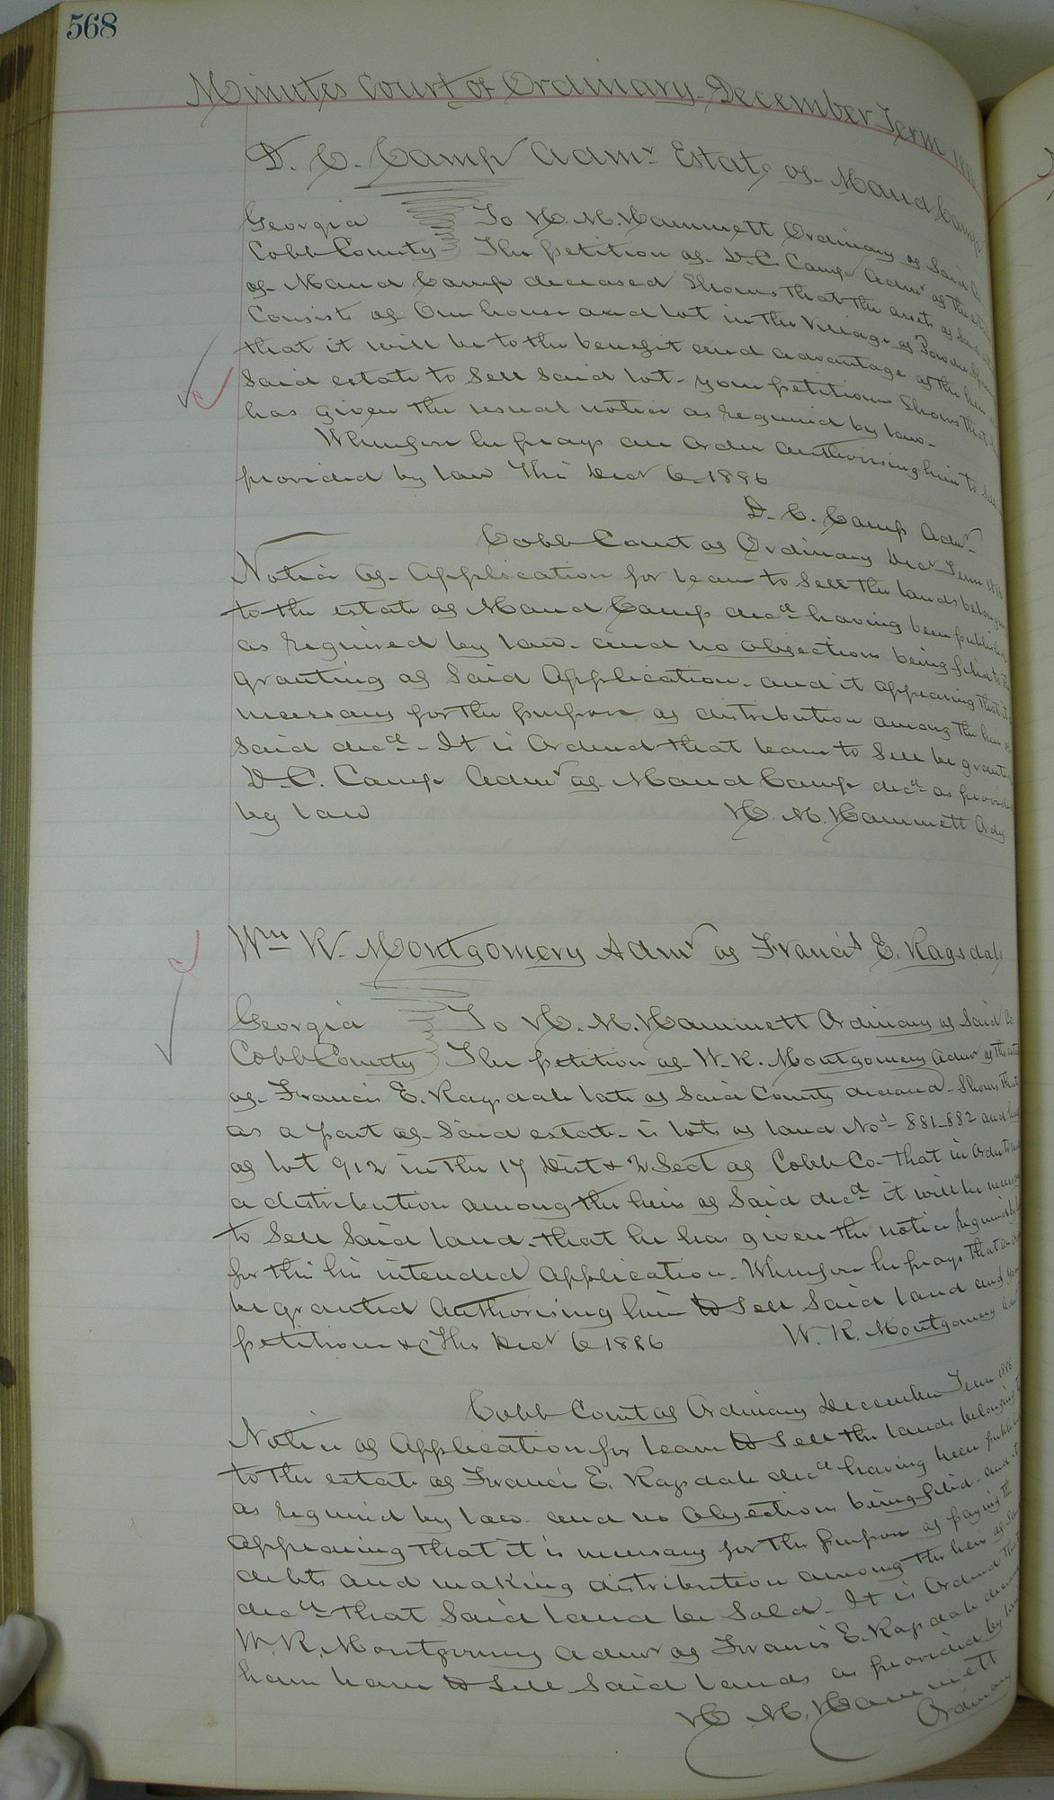 568
Minutes Court of Ordinary December Term
D. C. Camp Admr Estate of Maud Camp
Georgia To H. M. Hammett Ordinary of Said Co
Cobb County The petition of D. C. Camp Admr of the
of Maud Camp deceased Shows that the assets of said
Consists of One house and lot in the Village of Powder
that it will be to the benefit and advantage of the heirs
Said estate to Sell Said lot. your petitioner Shows that
has given the usual notice as required by law.
Wherefore he prays an order authorising him to sell
provided by law This Decr 6 1886
D. C. Camp Admr
Cobb Court of Ordinary Decr Term 1886
Notice of Application for leave to Sell the lands belonging
to the estate of Maud Camp decd having been published
as required by law. and no objections being filed to the
granting of Said Application. and it appearing that it is
necessary for the purpose of distribution among the heirs
Said decd. It is Ordered that leave to Sell be granted
D. C. Camp Admr of Maud Camp decd as provided
by law H. M. Hammett Ordy
Wm R. Montgomery Admr of Francis E. Ragsdale
Georgia To H. M. Hammett Ordinary of Said Co
Cobb County The petition of W. R. Montgomery Admr of the
of Francis E. Ragsdale late of Said County deceased. Shows that
as a part of Said estate is lots of land Nos 881_882 and
of lot 912 in the 17 Dist & 2 Sect of Cobb Co. that in order to
a distribution among the heirs of Said decd it will be necessary
to Sell Said land. that he has given the notice required by
for this his intended application. Wherefore he prays that an order
be granted Authorising him to Sell Said land and your
petitioner &c This Decr 6 1886 W. R. Montgomery
Cobb Court of Ordinary December Term 1886
Notice of Application for leave to Sell the lands belonging
to the estate of Francis E. Ragsdale decd having been published
as required by law. and no Objections being filed. and it
appearing that it is necessary for the purpose of paying the
debts and making distribution among the heirs of Said
decd that Said land be Sold. It is Ordered that
W. R. Montgomery Admr of Francis E. Ragsdale deceased
have leave to Sell Said lands as provided by law
H. M. Hammett
Ordinary